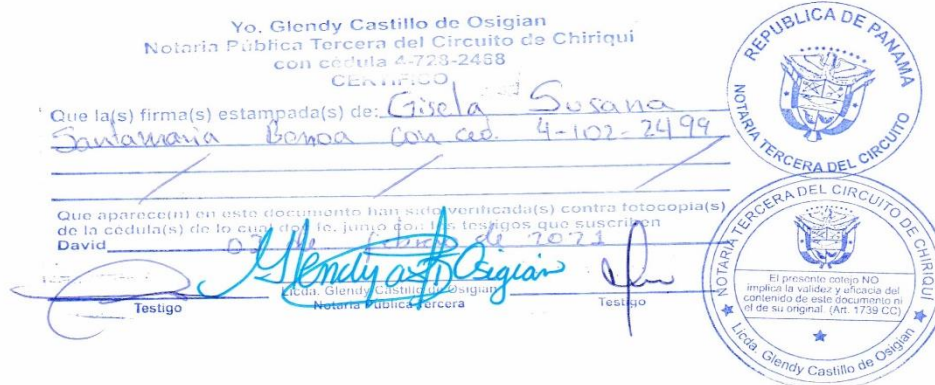 Yo. Glendy Castillo de Osigian
Notaria Pública Tercera del Circuito de Chiriquí
con cédula 4-728-2468
CERTIFICO
Que la(s) firma(s) estampada(s) de: Gisela Susana
Santamaria con ced. 4-102-2499
Que aparece(n) en este documento han sido verificada(s) contra fotocopia(s)
de la cédula(s) de lo cual doy fe, junto con los testigos que suscriben
David de de 2021
Glendy Osigian
Testigo
Licda. Glendy Castillo de Osigian
Notaria Pública Tercera
Testigo
REPUBLICA DE PANAMA
NOTARIA TERCERA DEL CIRCUITO
NOTARIA TERCERA DEL CIRCUITO DE CHIRIQUI
El presente cotejo NO
implica la validez y eficacia del
contenido de este documento ni
el de su original. (Art. 1739 CC)
Licda. Glendy Castillo de Osigian